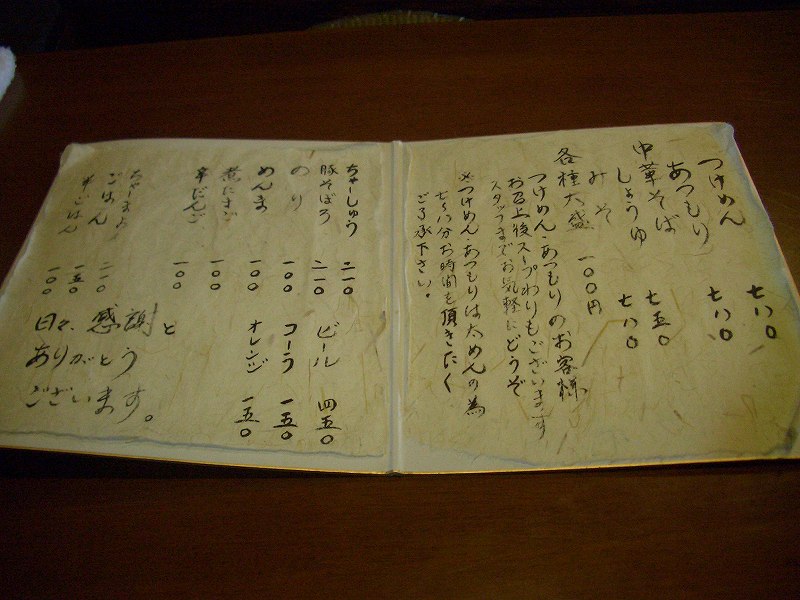 つけめん 七八〇
あつもり 七八〇
中華そば
しょうゆ 七五〇
みそ 七八〇
各種大盛 一〇〇円
つけめん・あつもりのお客様
お召上後スープわりもございます
スタッフまでお気軽にどうぞ
※つけめん・あつもりは太めんの為
七〜八分お時間を頂きたく
ご了承下さい。
ちゃーしゅう 二一〇
豚そぼろ 二一〇
のり 一〇〇
めんま 一〇〇
煮たまご 一〇〇
辛だんご 一〇〇
ごはん 二一〇
一五〇
半ごはん 一〇〇
ビール 四五〇
コーラ 一五〇
オレンジ 一五〇
日々、感謝と
ありがとう
ございます。